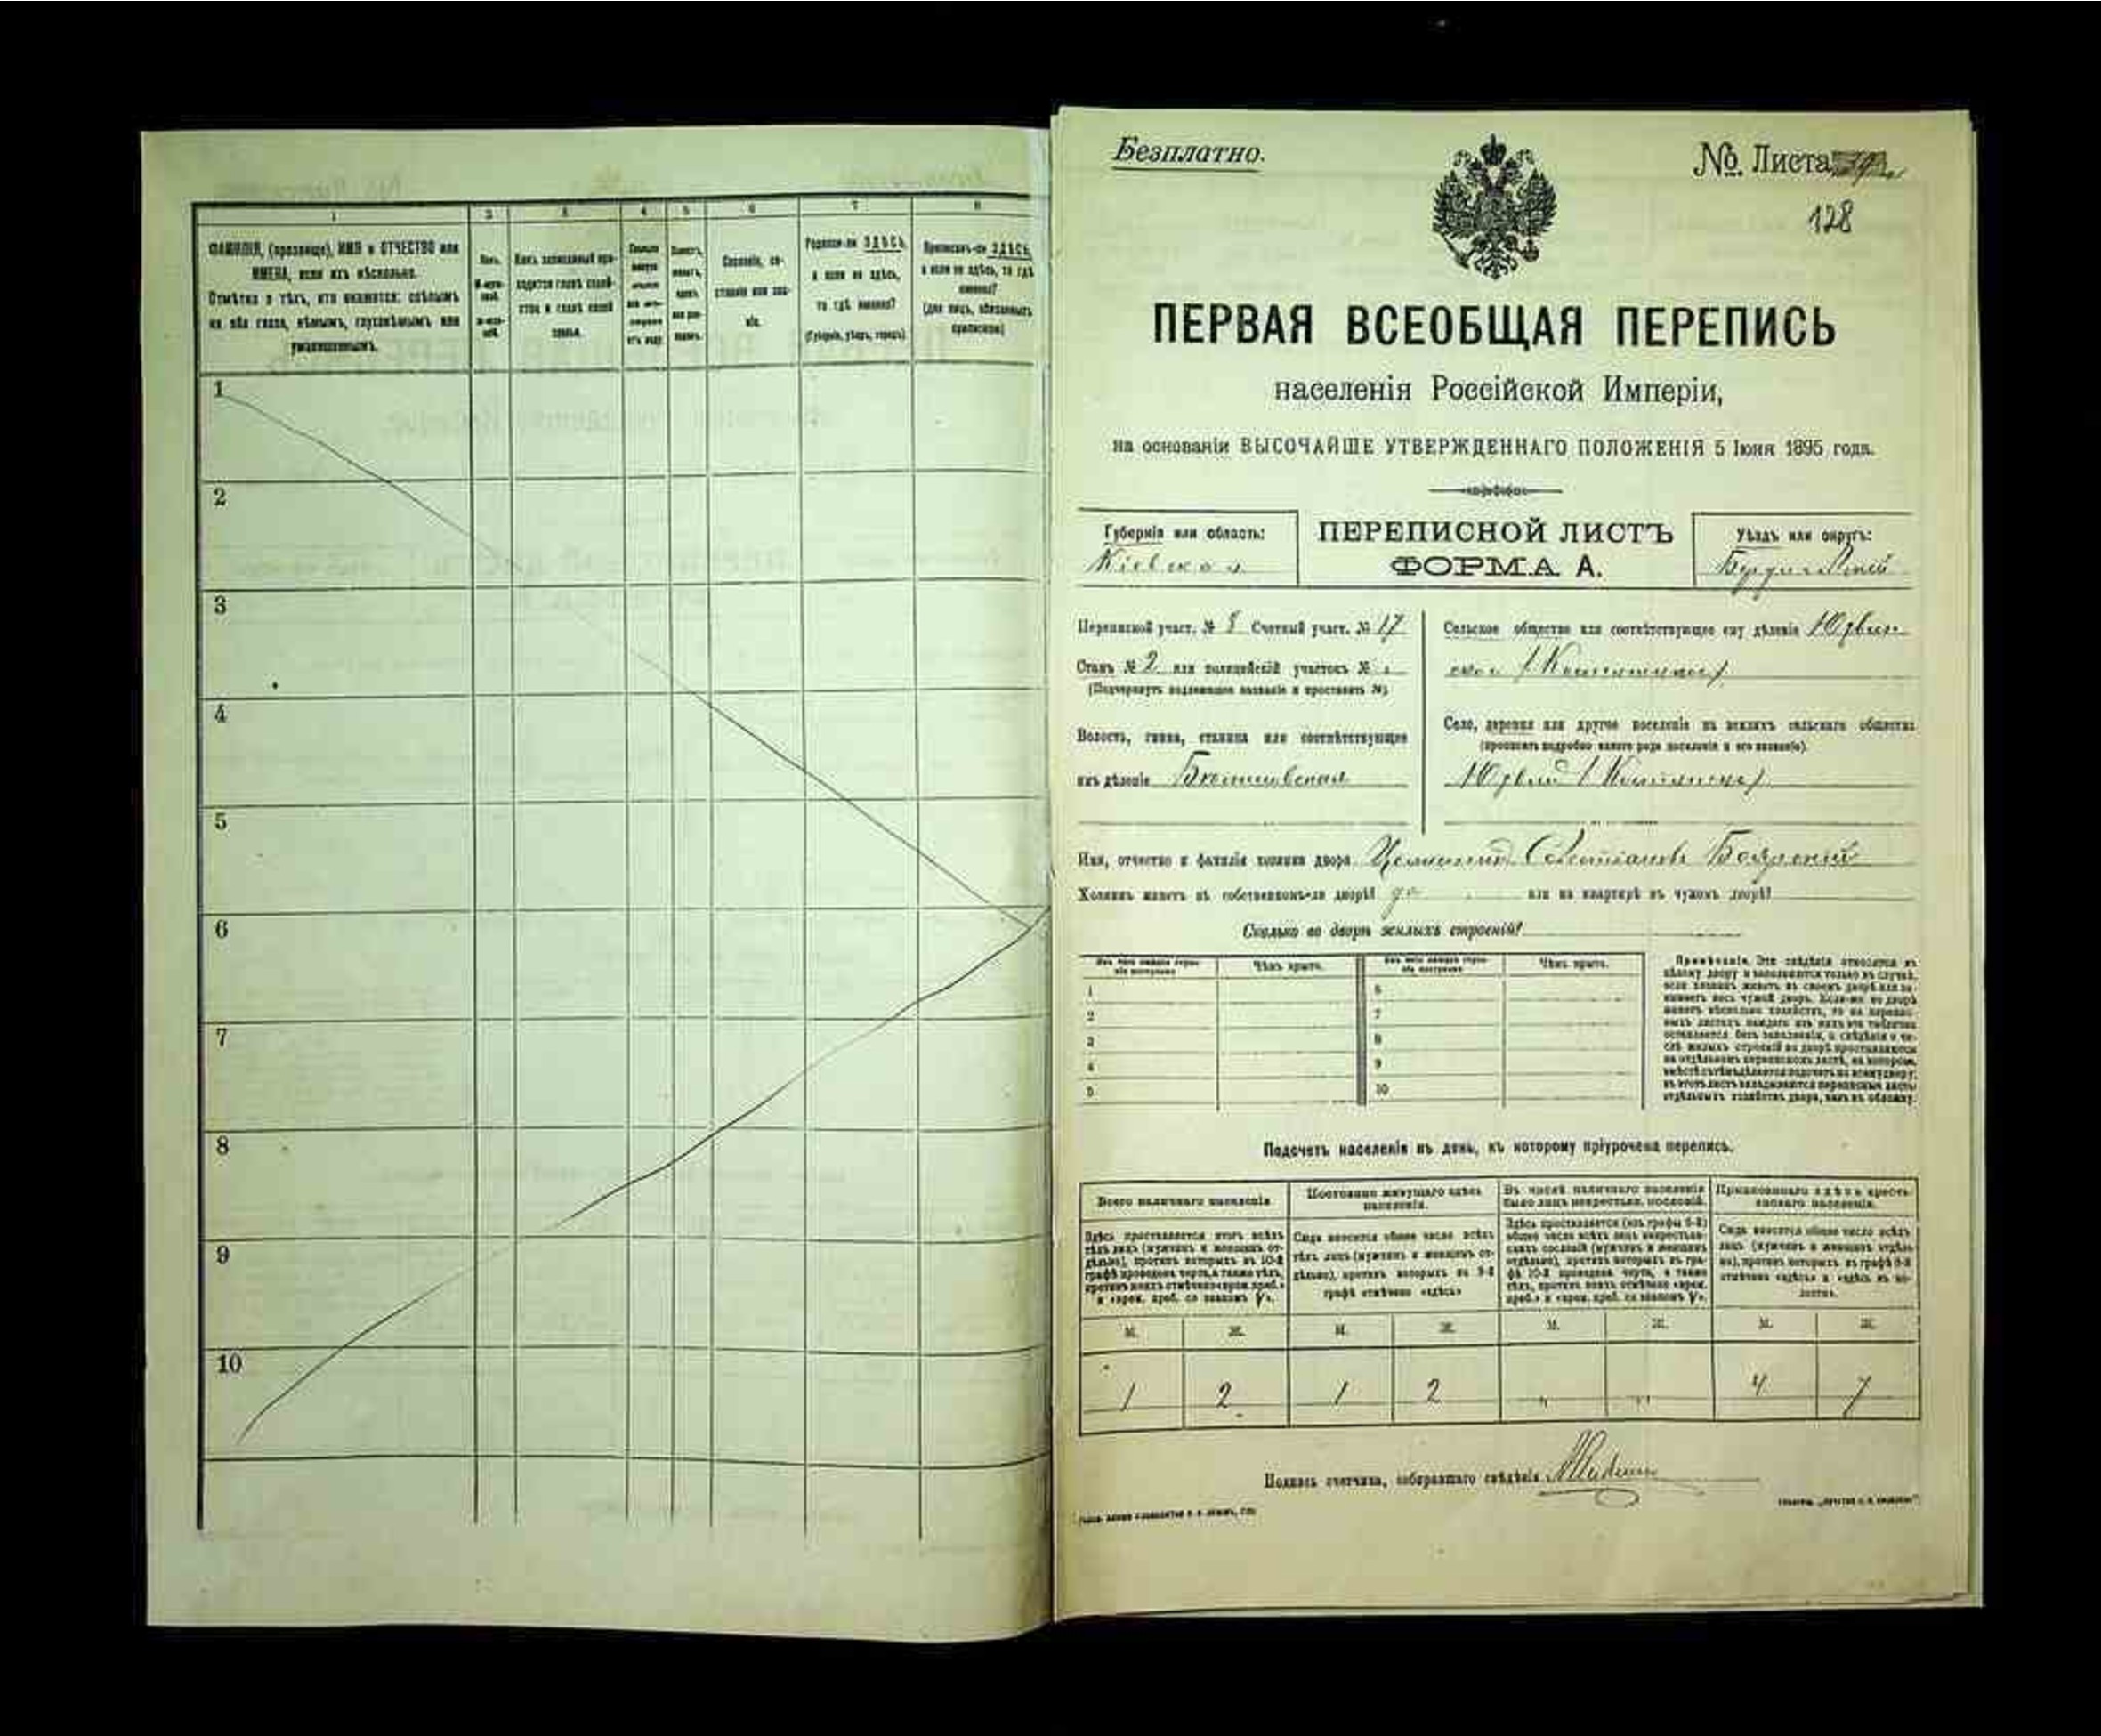 1 2 3 4 5 6 7 8
ФАМИЛІЯ, (прозвище), ИМЯ и ОТЧЕСТВО или
ИМЕНА, если ихъ нѣсколько.
Отмѣтка о тѣхъ, кто окажется: слѣпымъ
на оба глаза, нѣмымъ, глухонѣмымъ или
умалишеннымъ.
Какъ записанный при-
ходится главѣ хозяй-
ства и главѣ своей
семьи.
Сословіе, со-
стояніе или зва-
ніе.
Родился-ли ЗДѢСЬ,
а если не здѣсь,
то гдѣ именно?
(Губернія, уѣздъ, городъ)
Приписанъ-ли ЗДѢСЬ,
а если не здѣсь, то гдѣ
именно?
(для лицъ, обязанныхъ
припискою)
1
2
3
4
5
6
7
8
9
10
Безплатно.
№ Листа
128
ПЕРВАЯ ВСЕОБЩАЯ ПЕРЕПИСЬ
населенія Россійской Имперіи,
на основаніи ВЫСОЧАЙШЕ УТВЕРЖДЕННАГО ПОЛОЖЕНІЯ 5 Іюня 1895 года.
Губернія или область:
Кіевская
ПЕРЕПИСНОЙ ЛИСТЪ
ФОРМА А.
Уѣздъ или округъ:
Бердичевскій
Переписной участ. № 8 Счетный участ. № 17
Станъ № 2 или полицейскій участокъ №
(Подчеркнуть подлежащее названіе и проставить №)
Волость, гмина, станица или соотвѣтствующее
имъ дѣленіе
Сельское общество или соотвѣтствующее ему дѣленіе
Село, деревня или другое поселеніе на земляхъ сельскаго общества
(прописать подробно какого рода поселеніе и его названіе).
Имя, отчество и фамилія хозяина двора Боярскій
Хозяинъ живетъ въ собственномъ-ли дворѣ? да или на квартирѣ въ чужомъ дворѣ?
Сколько во дворѣ жилыхъ строеній?
Чѣмъ крыто. Чѣмъ крыто.
1 6
2 7
3 8
4 9
5 10
Примѣчаніе. Эти свѣдѣнія относятся къ
цѣлому двору и заполняются только въ случаѣ,
если хозяинъ живетъ въ своемъ дворѣ или за-
нимаетъ весь чужой дворъ. Если-же во дворѣ
живетъ нѣсколько хозяйствъ, то на перепис-
ныхъ листахъ каждаго изъ нихъ эта табличка
оставляется безъ заполненія, а свѣдѣнія о чи-
слѣ жилыхъ строеній во дворѣ проставляются
на отдѣльномъ переписномъ листѣ, на которомъ
вмѣстѣ съ тѣмъ дѣлается подсчетъ по всему двору;
въ этотъ листъ вкладываются переписные листы
отдѣльныхъ хозяйствъ двора, какъ въ обложку.
Подсчетъ населенія въ день, къ которому пріурочена перепись.
Всего наличнаго населенія
Здѣсь проставляется итогъ всѣхъ
тѣхъ лицъ (мужчинъ и женщинъ от-
дѣльно), противъ которыхъ въ 10-й
графѣ проведена черта, а также тѣхъ,
противъ коихъ отмѣчено «врем. преб.»
и «врем. преб. со знакомъ V».
Постоянно живущаго здѣсь
населенія.
Сюда вносится общее число всѣхъ
тѣхъ лицъ (мужчинъ и женщинъ от-
дѣльно), противъ которыхъ въ 9-й
графѣ отмѣчено «здѣсь»
Въ числѣ наличнаго населенія
было лицъ некрестьян. сословій.
Здѣсь проставляется (изъ графы 6-й)
общее число всѣхъ лицъ некрестьян-
скихъ сословій (мужчинъ и женщинъ
отдѣльно), противъ которыхъ въ гра-
фѣ 10-й проведена черта, а также
тѣхъ, противъ коихъ отмѣчено «врем.
преб.» и «врем. преб. со знакомъ V».
Приписаннаго здѣсь кресть-
янскаго населенія.
Сюда вносится общее число всѣхъ
лицъ (мужчинъ и женщинъ отдѣль-
но), противъ которыхъ въ графѣ 8-й
отмѣчено «здѣсь» и «здѣсь въ во-
лости».
М. Ж. М. Ж. М. Ж. М. Ж.
1 2 1 2 „ „ 4 7
Подпись счетчика, собиравшаго свѣдѣнія